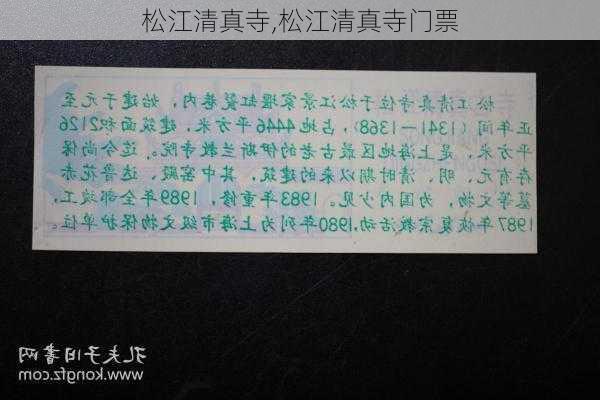 松江清真寺,松江清真寺门票
松江清真寺位于松江景家堰缸甏巷内,始建于元至
正年间(1341—1368),占地4446平方米,建筑面积2126
平方米,是上海地区最古老的伊斯兰教寺院。迄今尚保
存有元、明、清时期以来的建筑,其中窑殿、达鲁花赤
墓等文物,为国内少见。1983年重修,1989年全部竣工,
1987年恢复宗教活动,1980年列为上海市级文物保护单位。
孔夫子旧书网
www.kongfz.com